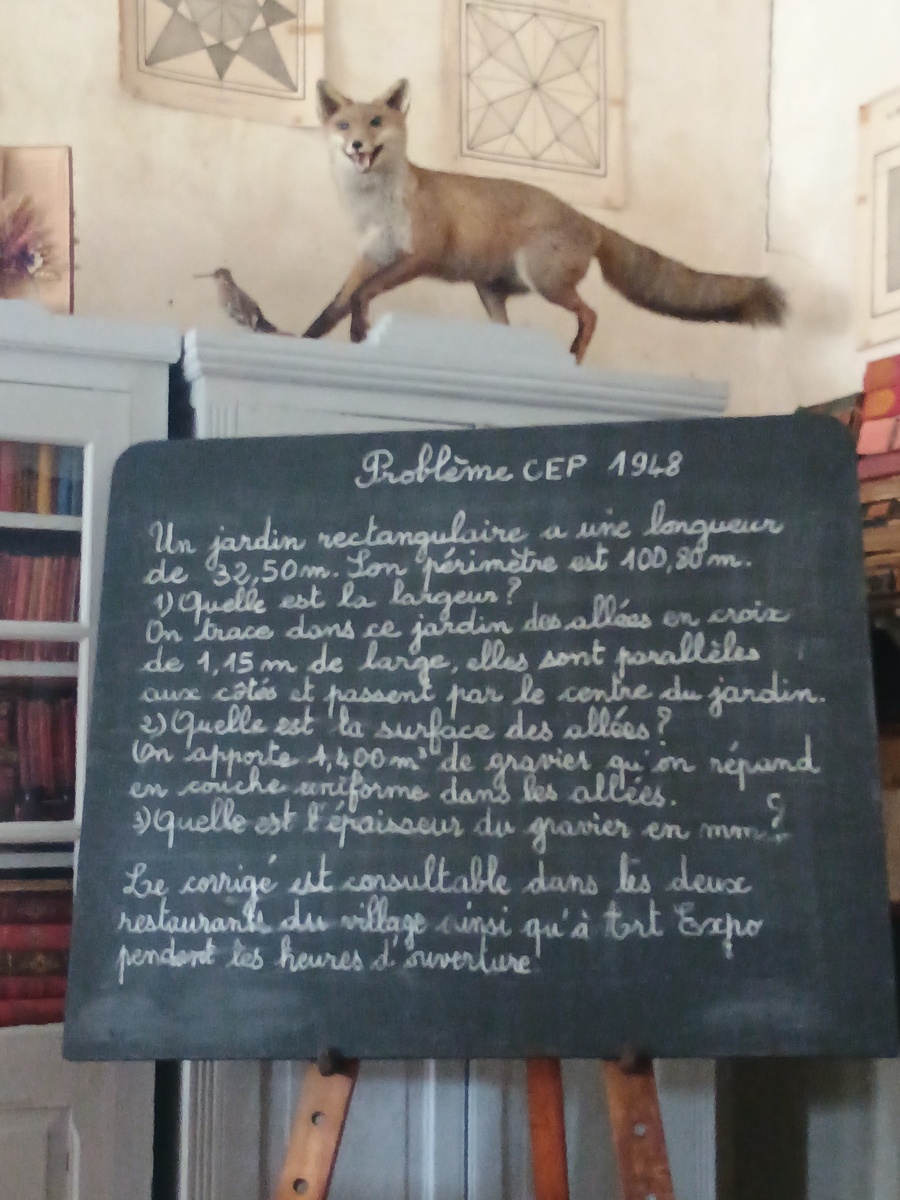 Problème CEP 1948
Un jardin rectangulaire a une longueur
de 32,50m. Son périmètre est 100,80m.
1) Quelle est la largeur?
On trace dans ce jardin des allées en croix
de 1,15m de large, elles sont parallèles
aux côtés et passent par le centre du jardin.
2) Quelle est la surface des allées?
On apporte 1,400m³ de gravier qu'on répand
en couche uniforme dans les allées.
3) Quelle est l'épaisseur du gravier en mm?
Le corrigé est consultable dans les deux
restaurants du village ainsi qu'à Art Expo
pendant les heures d'ouverture